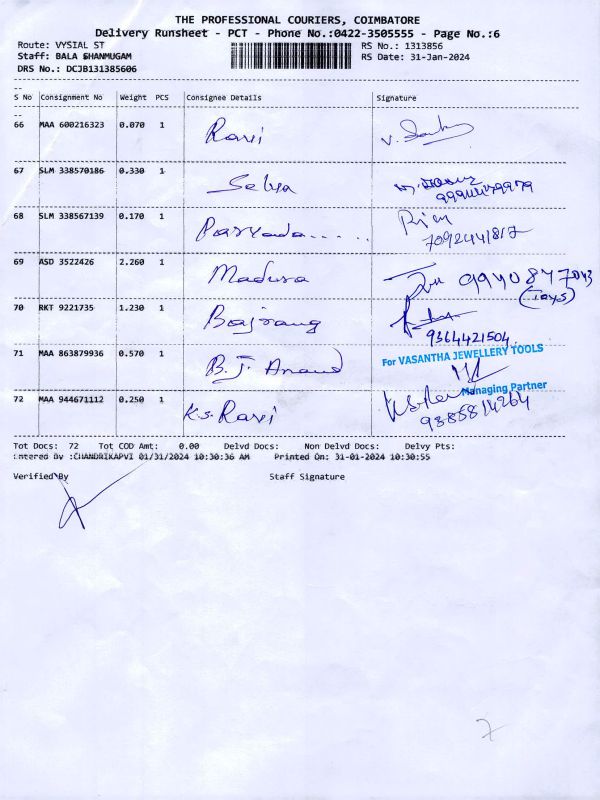 THE PROFESSIONAL COURIERS, COIMBATORE
Delivery Runsheet - PCT - Phone No.:0422-3505555 - Page No.:6
Route: VYSIAL ST RS No.: 1313856
Staff: BALA SHANMUGAM RS Date: 31-Jan-2024
DRS No.: DCJB131385606
S No Consignment No Weight PCS Consignee Details Signature
66 MAA 600216323 0.070 1 Ravi
67 SLM 338570186 0.330 1 Selva
68 SLM 338567139 0.170 1
7092441817
69 ASD 3522426 2.260 1 Madura
(Toys)
70 RKT 9221735 1.230 1 Bajrang
9364421504
71 MAA 863879936 0.570 1 B.J. Anand For VASANTHA JEWELLERY TOOLS
Managing Partner
72 MAA 944671112 0.250 1 K.S. Ravi
9385814264
Tot Docs: 72 Tot COD Amt: 0.00 Delvd Docs: Non Delvd Docs: Delvy Pts:
Entered By :CHANDRIKAPVI 01/31/2024 10:30:36 AM Printed On: 31-01-2024 10:30:55
Verified By Staff Signature
7